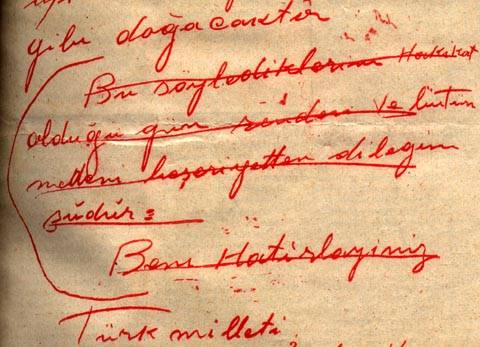 gibi doğacaktır
Bu söylediklerim Hakikat
olduğu gün senden ve bütün
medenî beşeriyetten dileğim
şudur:
Beni Hatırlayınız
Türk milleti